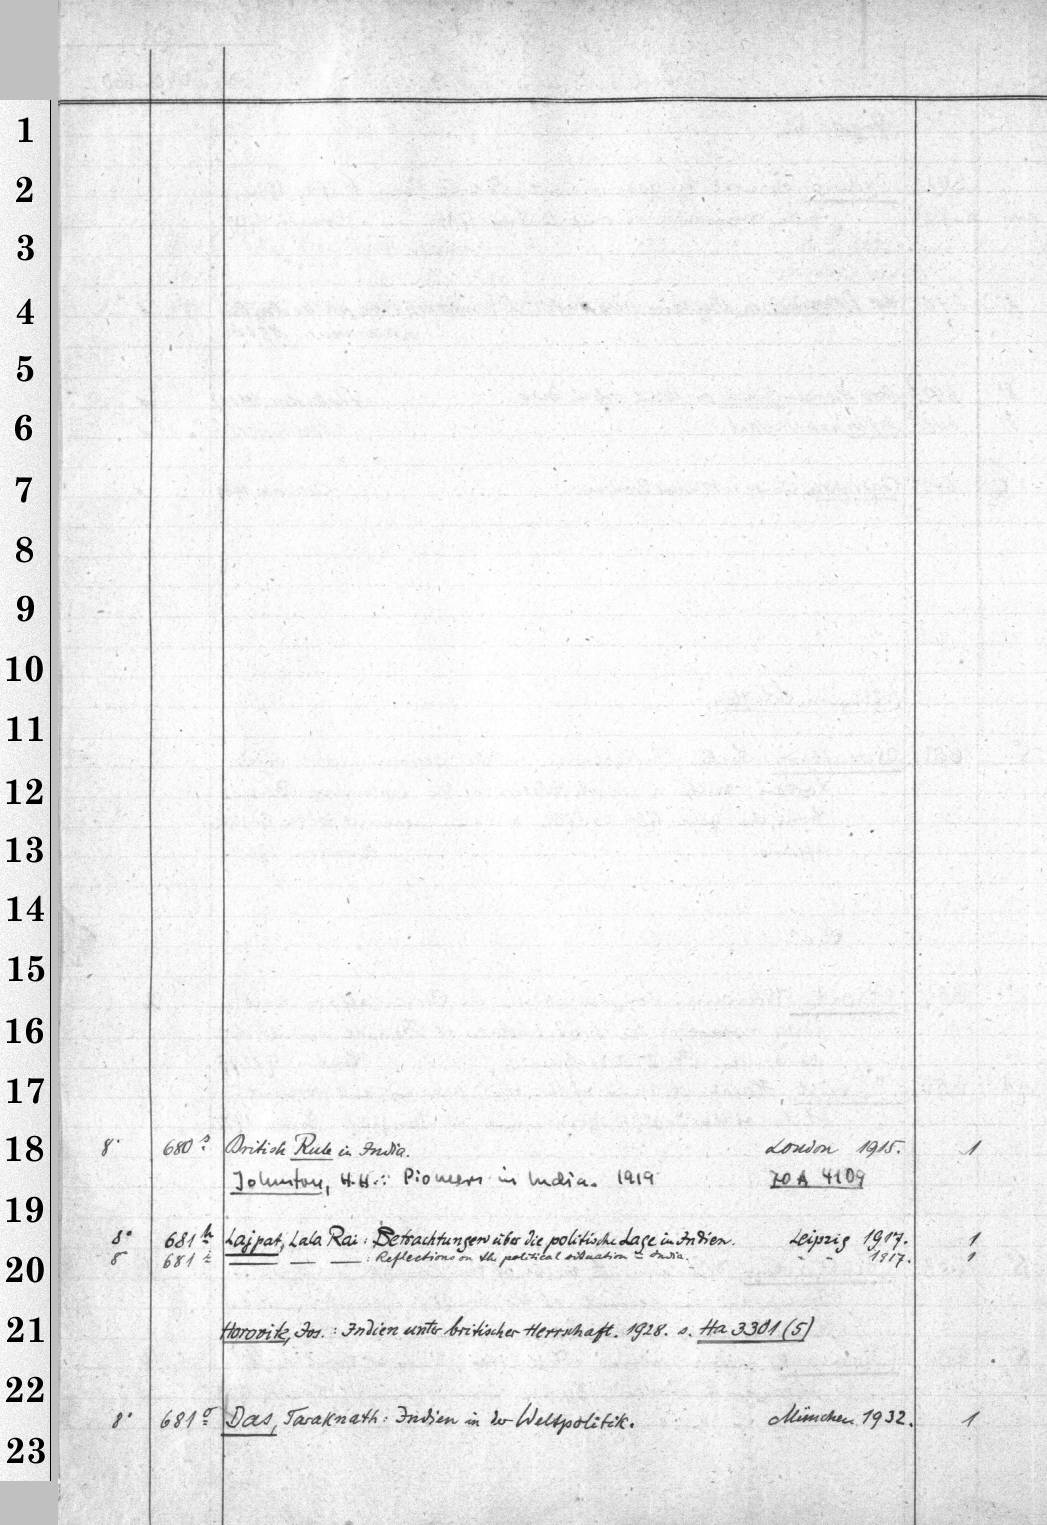 1
2
3
4
5
6
7
8
9
10
11
12
13
14
15
16
17
18
19
20
21
22
23
8° 680 s British Rule in India. London 1915. 1
Johnston, H.H.: Pioneers in India. 1919 70 A 4109
8° 681 h Lajpat, Lala Rai: Betrachtungen über die politische Lage in Indien. Leipzig 1917. 1
8° 681 i — — — : Reflections on the political situation in India. " " 1917. 1
Horovitz, Jos.: Indien unter britischer Herrschaft. 1928. s. Ha 3301 (5)
8° 681 o Das, Taraknath: Indien in der Weltpolitik. München 1932. 1